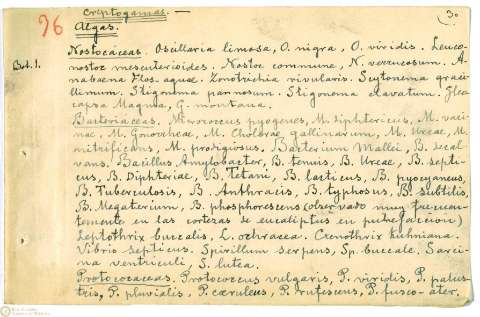 96
Criptogamas.—
(30
Algas.
Bot. 1.
Nostocáceas. Oscillaria limosa, O. nigra, O. viridis. Leuco-
nostoc mesenterioides. Nostoc commune, N. verrucosum. A-
nabaena Flos-aquae. Zonotrichia rivularis. Scytonema graci-
llimum. Stigonema pannosum. Stigonema clavatum. Gleo
capsa Magma, G. montana.
Bacteriaceas. Micrococus pyogenes, M. diphtericus, M. vaci-
nae, M. Gonorrheae, M. Cholerae gallinarum, M. Ureae, M.
nitrificans, M. prodigiosus, Bacterium Mallei, B. secal
vans. Bacillus Amylobacter, B. tenuis, B. Ureae, B. septi-
cus, B. Diphteriae, B. Tetani, B. lacticus, B. pyocyaneus,
B. Tuberculosis, B. Anthracis, B. typhosus, B. subtilis,
B. Megaterium, B. phosphorescens (observado muy frecuen-
temente en las cortezas de eucaliptus en putrefaccion)
Leptothrix buccalis, L. ochracea. Crenothrix kuhniana.
Vibrio septicus. Spirillum serpens, Sp. buccale. Sarci-
na ventriculi, S. lutea.
Protococaceas. Protococcus vulgaris, P. viridis, P. palus-
tris, P. pluvialis, P. caeruleus, P. rufescens, P. fusco-ater.